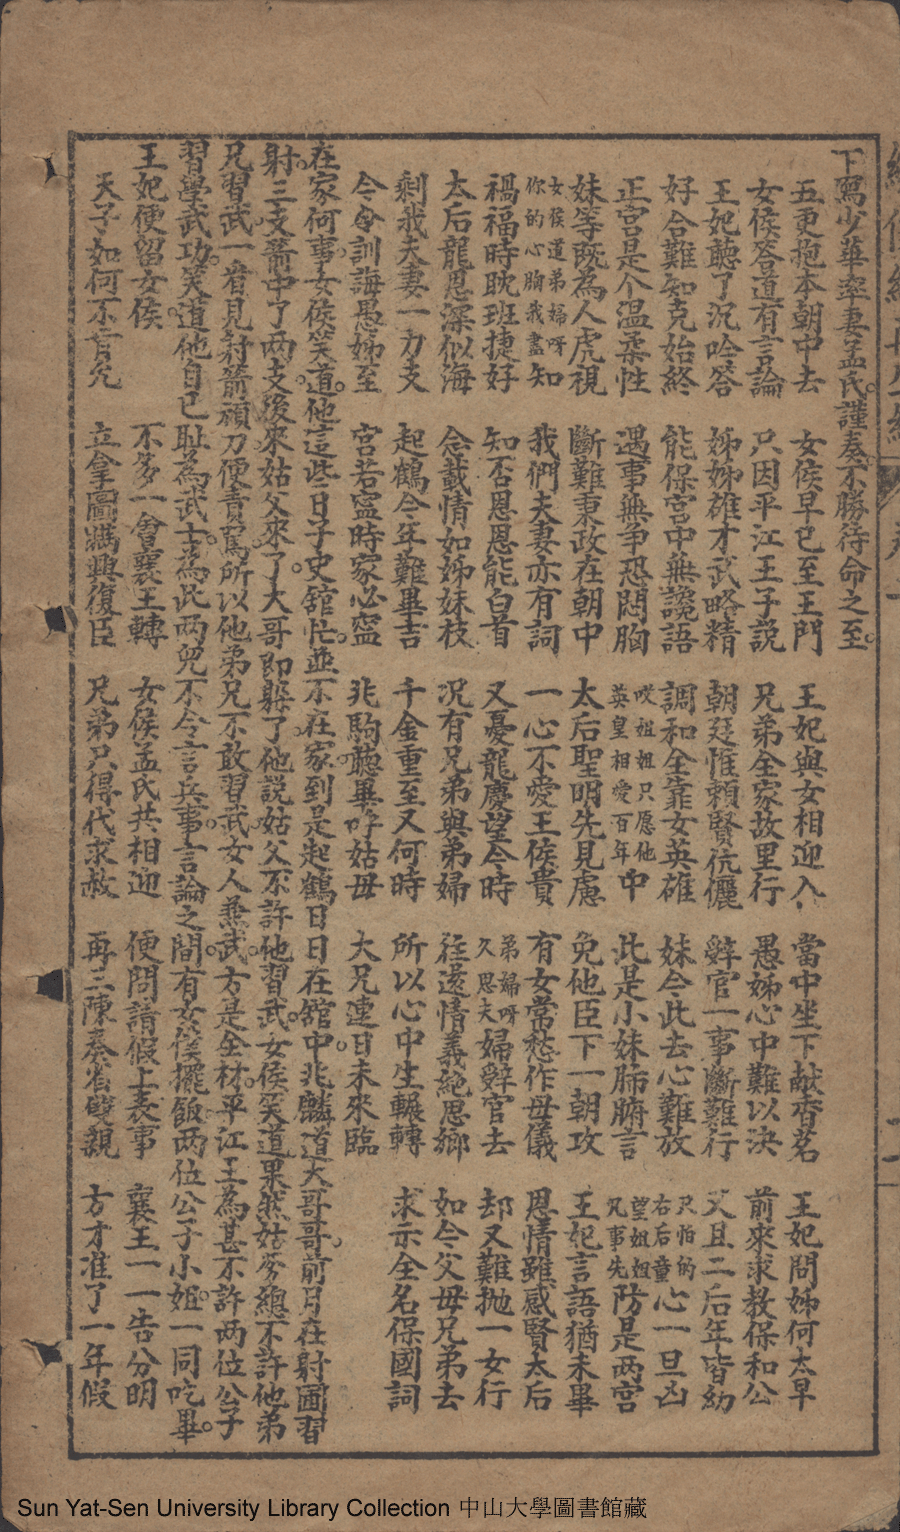 下寫少華率妻孟氏。謹奏不勝待命之至。
五更抱本朝中去 女侯早已至王門 王妃與女相迎入 當中坐下献香茗 王妃問姊何太早
女侯答道有言論 只因平江王子説 兄弟全家故里行 愚姊心中難以决 前來求教保和公
王妃聽了沉吟答 姊姊雄才武略精 朝廷惟賴賢伉儷 辤官一事斷難行 又且二后年皆幼
好合難如克始終 能保宫中無讒語 調和全靠女英雄 妹今此去心難放 只怕的右后童心一旦凶
正宫是个温柔性 遇事無争恐悶胸 哎姐姐只愿他英皇相愛百年中 此是小妹肺腑言 望姐姐凡事先防是两宫
妹等既為人虎視 斷難秉政在朝中 太后聖明先見慮 免他臣下一朝攻 王妃言語猶未畢
女侯道弟婦呀你的心胸我盡知 我們夫妻亦有詞 一心不愛王侯貴 有女常愁作母儀 恩情雖感賢太后
禍福時耽班捷好 知否恩恩能白首 又憂龍慶望今時 弟婦呀久思夫婦辤官去 却又難抛一女行
太后龍恩深似海 念載情如姊妹枝 况有兄弟與弟婦 往還情義絶思鄉 如今父母兄弟去
剩我夫妻一力支 起鶴今年難畢吉 千金重至又何時 所以心中生輾轉 求示全名保國詞
今令訓誨愚姊至 宫若寍時家必寍 兆駒聽畢呼姑母 大兄連日未來臨
在家何事。女侯笑道。他這些日子史舘忙。並不在家。到是起鶴日日在舘中。兆麟道大哥哥。前月在射圃習
射。三支箭中了两支。後來姑父來了。大哥即躲了。他説姑父不許他習武。女侯笑道果然姑爹總不許他弟
兄習武。一省見射箭頑刀便責罵。所以他弟兄不敢習武。女人兼武。方是全材。平江王為甚不許两位公子
習學武功。笑道他自已耻為武士。為此两兒不令言兵事。言論之間有女侯擺飯。两位公子小姐。一同吃畢。
王妃便留女侯 不多一會襄王轉 女侯孟氏共相迎 便問請假上表事 襄王一一告分明
天子如何不肯允 立拿圖謀興復臣 兄弟只得代求赦 再三陳奏省雙親 方才准了一年假
Sun Yat-Sen University Library Collection 中山大學圖書館藏